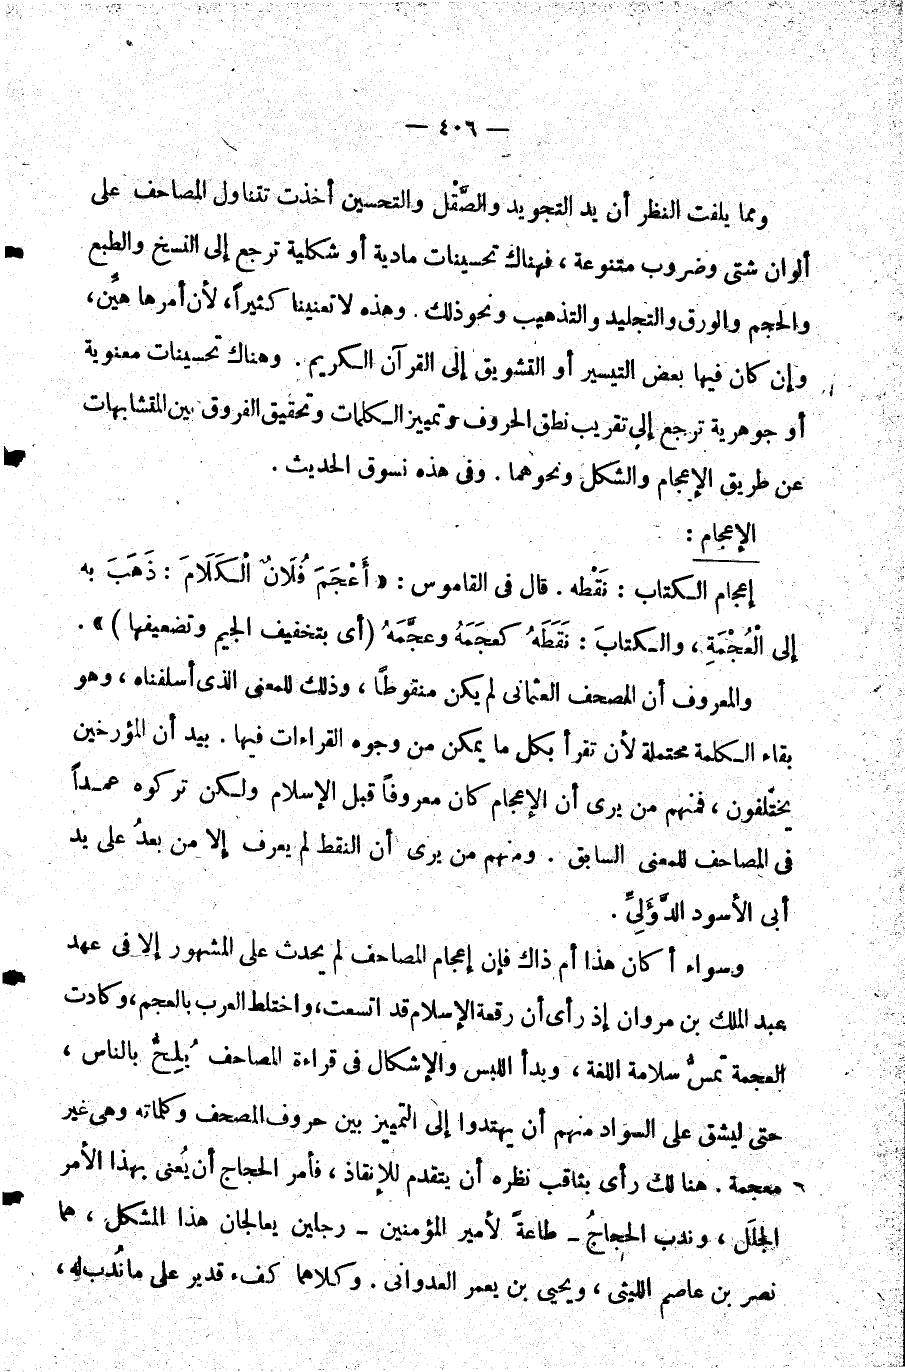 — ٤٠٦ —
ومما يلفت النظر أن يد التجويد والصَّقْل والتحسين أخذت تتناول المصاحف على
ألوان شتى وضروب متنوعة ، فهناك تحسينات مادية أو شكلية ترجع إلى النسخ والطبع
والحجم والورق والتجليد والتذهيب ونحو ذلك . وهذه لا تعنينا كثيراً، لأن أمرها هيِّن،
وإن كان فيها بعض التيسير أو التشويق إلى القرآن الكريم . وهناك تحسينات معنوية
أو جوهرية ترجع إلى تقريب نطق الحروف وتمييز الكلمات وتحقيق الفروق بين المتشابهات
عن طريق الإعجام والشكل ونحوهما . وفى هذه نسوق الحديث .
الإعجام :
إعجام الكتاب : نَقْطه . قال فى القاموس : « أَعْجَمَ فُلَانٌ الْكَلَامَ : ذَهَبَ به
إلى الْعُجْمَةِ ، والكتابَ : نَقَطَهُ كعجَمَهُ وعجَّمَهُ (أى بتخفيف الجيم وتضعيفها) » .
والمعروف أن المصحف العثمانى لم يكن منقوطًا ، وذلك للمعنى الذى أسلفناه ، وهو
بقاء الكلمة محتملة لأن تقرأ بكل ما يمكن من وجوه القراءات فيها . بيد أن المؤرخين
يختلفون ، فمنهم من يرى أن الإعجام كان معروفاً قبل الإسلام ولكن تركوه عمداً
فى المصاحف للمعنى السابق . ومنهم من يرى أن النقط لم يعرف إلا من بعدُ على يد
أبى الأسود الدُّؤَلِىِّ .
وسواء أ كان هذا أم ذاك فإن إعجام المصاحف لم يحدث على المشهور إلا فى عهد
عبد الملك بن مروان إذ رأى أن رقعة الإسلام قد اتسعت، واختلط العرب بالعجم، وكادت
العجمة تمسُّ سلامة اللغة ، وبدأ اللبس والإشكال فى قراءة المصاحف يُلِحُّ بالناس ،
حتى ليشق على السواد منهم أن يهتدوا إلى التمييز بين حروف المصحف وكلماته وهى غير
معجمة . هنالك رأى بثاقب نظره أن يتقدم للإنقاذ ، فأمر الحجاج أن يُعنى بهذا الأمر
الجلَل ، وندب الحجاجُ – طاعةً لأمير المؤمنين – رجلين يعالجان هذا المشكل ، هما
نصر بن عاصم الليثى ، ويحيى بن يعمر العدوانى . وكلاهما كفء قدير على ما نُدب له ،